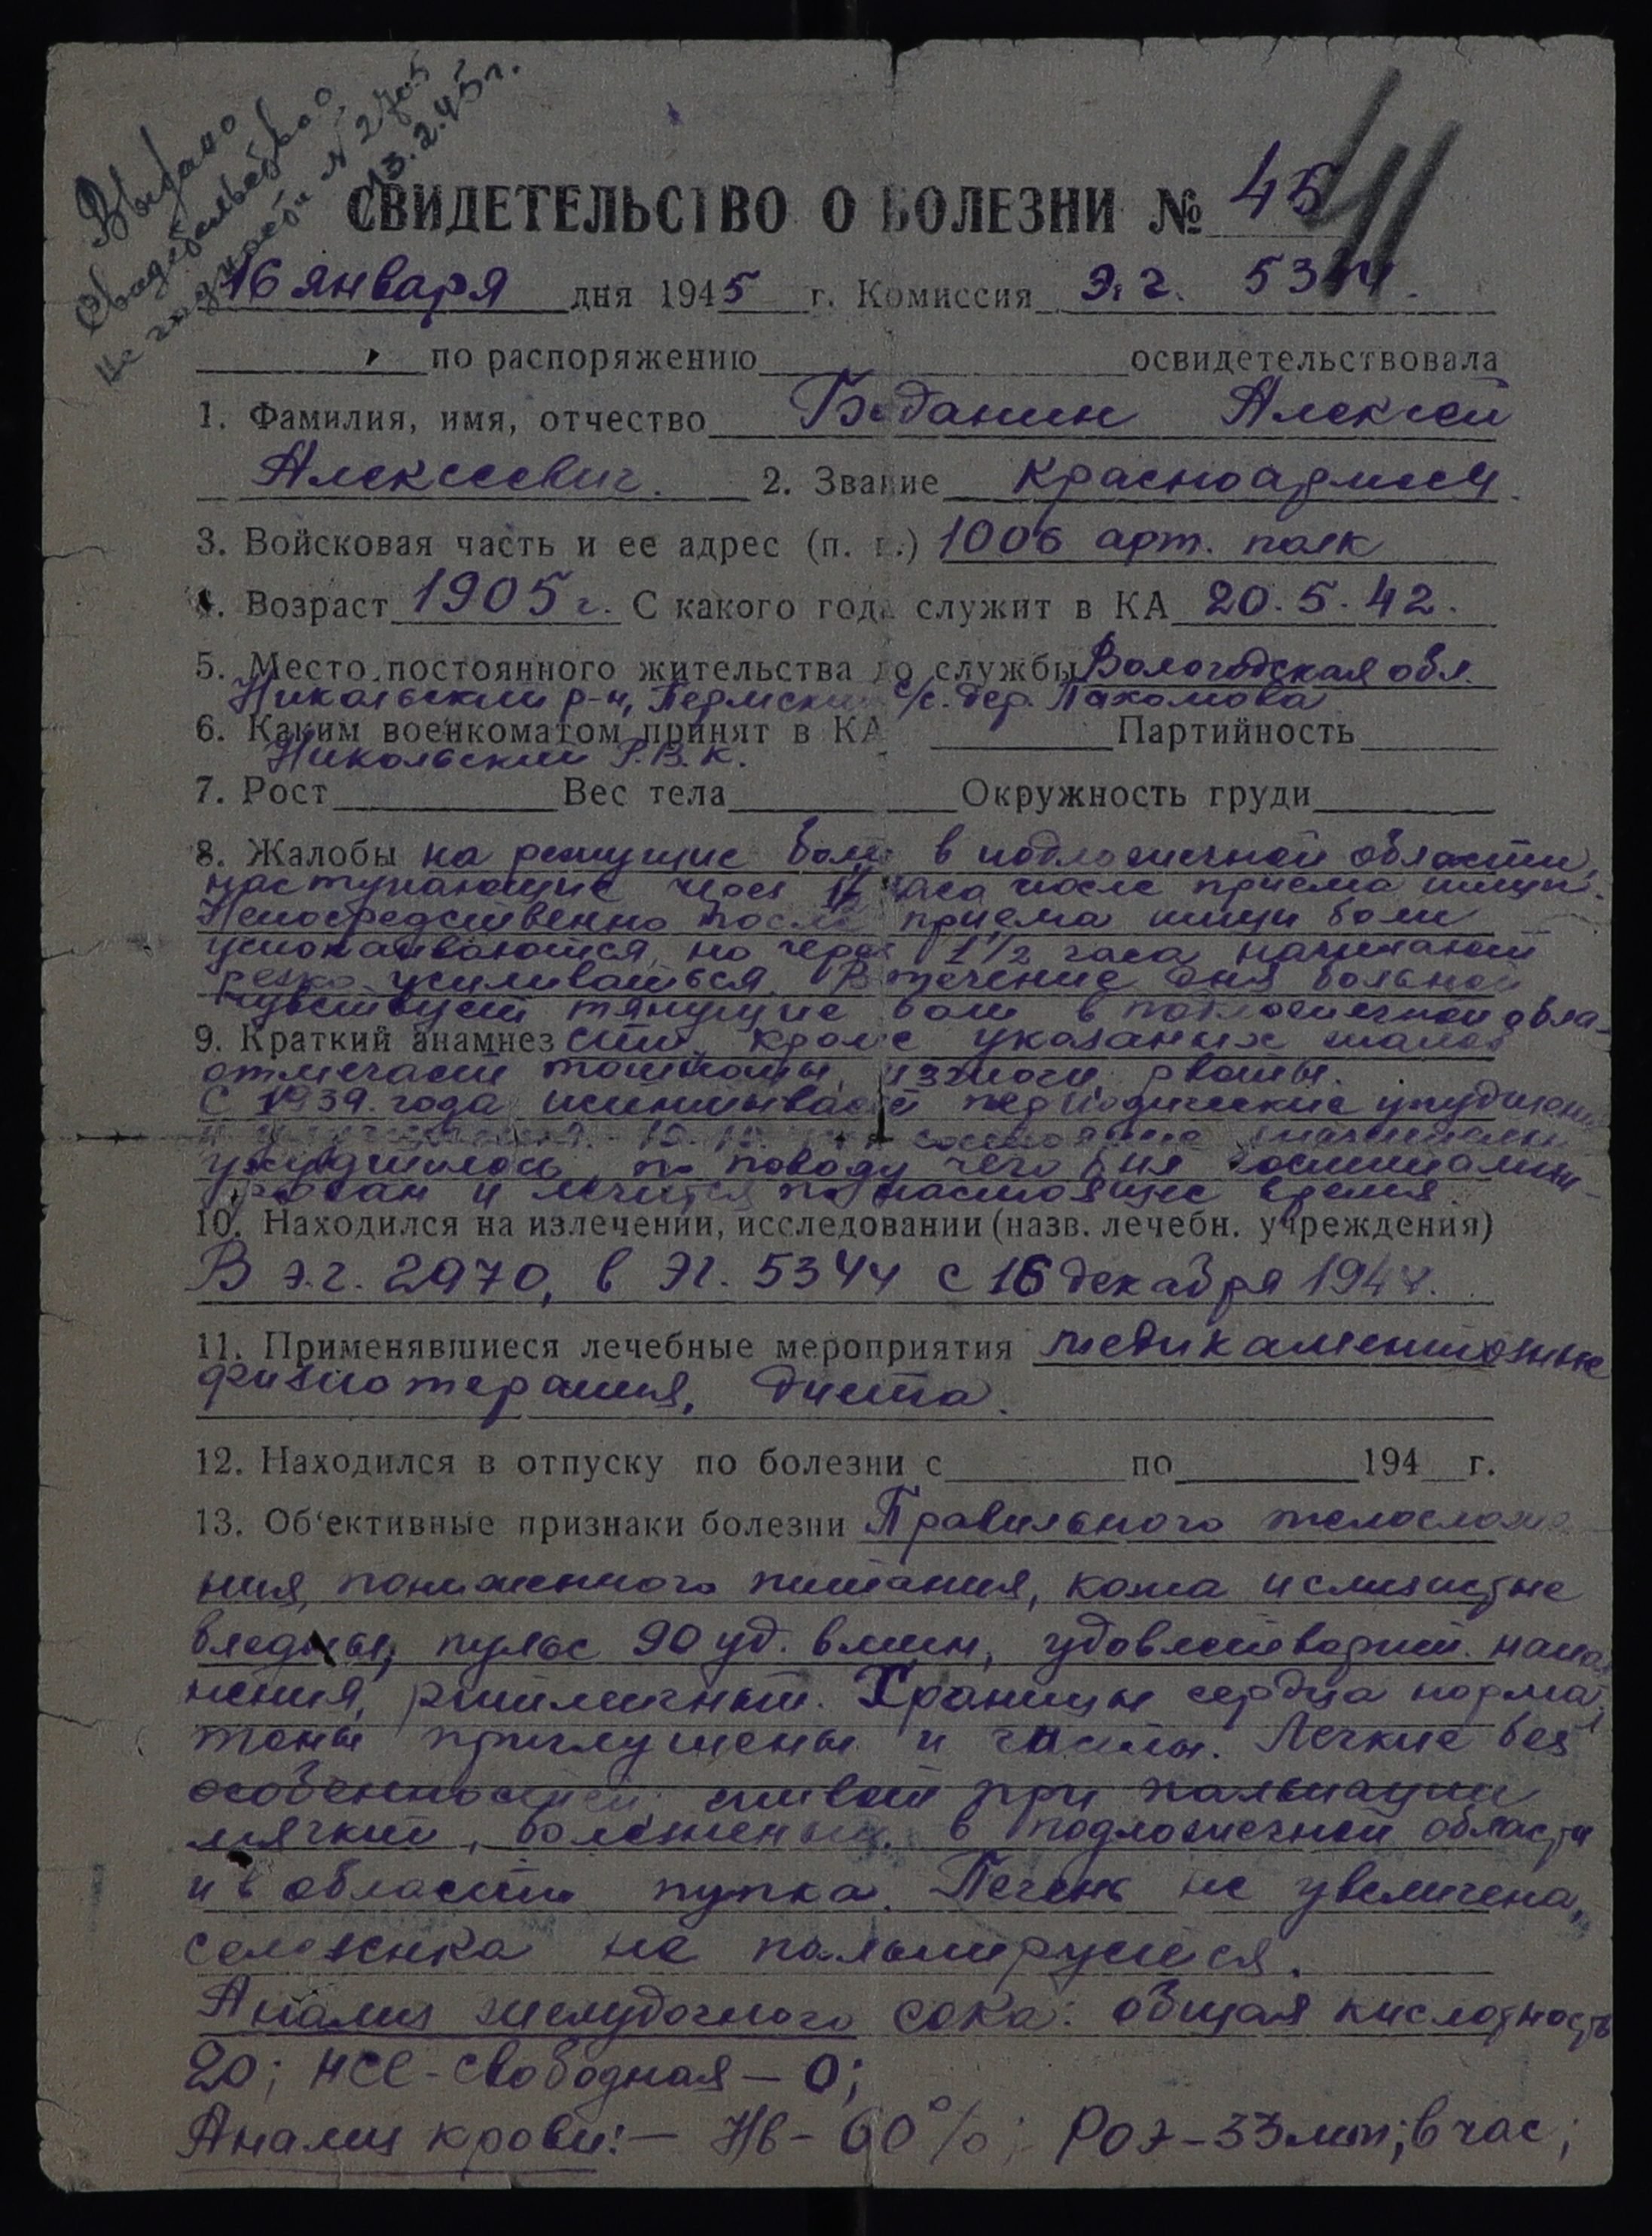 Выдано
Свидетельство о
не годности № 2705
13.2.45 г.
СВИДЕТЕЛЬСТВО О БОЛЕЗНИ № 45
41
16 января дня 1945 г. Комиссия Э.г. 5344.
по распоряжению освидетельствовала
1. Фамилия, имя, отчество Алексей
Алексеевич. 2. Звание красноармеец.
3. Войсковая часть и ее адрес (п. п.) 1006 арт. полк
4. Возраст 1905 г. С какого года служит в КА 20.5.42.
5. Место постоянного жительства до службы Вологодская обл.
Никольский р-н, Пермский с/с. дер. Пахомова
6. Каким военкоматом принят в КА Партийность
Никольский Р.В.К.
7. Рост Вес тела Окружность груди
8. Жалобы на режущие боли в подложечной области,
наступающие через часа после приема пищи.
Непосредственно после приема пищи боли
успокаиваются, но через 1 1/2 часа начинают
резко усиливаться. В течение дня больной
чувствует тянущие боли в подложечной обла-
9. Краткий анамнез сти. Кроме указаных жалоб
отмечает тошноты, изжоги, рвоты.
С 1939 года испытывает периодические ухудшения
состояние значительно
ухудшилось, по поводу чего был госпитали-
зирован и лечится по настоящее время.
10. Находился на излечении, исследовании (назв. лечебн. учреждения)
В э.г. 2970, в ЭГ. 5344 с 16 декабря 1944.
11. Применявшиеся лечебные мероприятия медикаментозные
физиотерапия, диета.
12. Находился в отпуску по болезни с по 194 г.
13. Об‘ективные признаки болезни Правильного телосложе
ния, пониженного питания, кожа и слизистые
бледны, пульс 90 уд. в мин, удовлетворит. напол
нения, ритмичный. Границы сердца норма
тоны приглушены и чисты. Легкие без
особенностей, живот при пальпации
мягкий, болезненный в подложечной области
и в области пупка. Печень не увеличена,
селезенка не пальпируется.
Анализ желудочного сока: общая кислотность
20; HCl - свободная — 0;
Анализ крови: — Нв - 60%; РОЭ - 33 мм; в час;